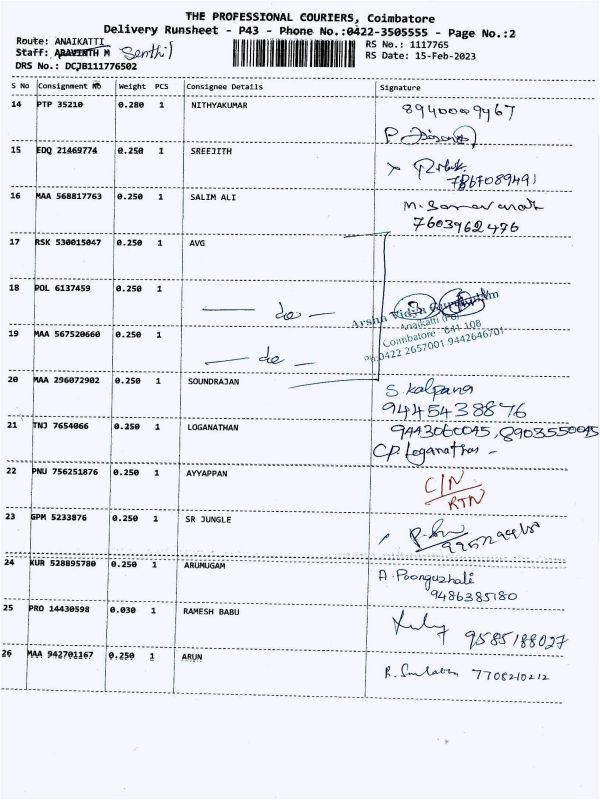 THE PROFESSIONAL COURIERS, Coimbatore
Delivery Runsheet - P43 - Phone No.:0422-3505555 - Page No.:2
Route: ANAIKATTI
RS No.: 1117765
Staff: ARAVINTH M Senthil
RS Date: 15-Feb-2023
DRS No.: DCJB111776502
S No Consignment No Weight PCS Consignee Details Signature
14 PTP 35210 0.280 1 NITHYAKUMAR 8940009467
15 EDQ 21469774 0.250 1 SREEJITH
7867089491
16 MAA 568817763 0.250 1 SALIM ALI
7603962476
17 RSK 530015047 0.250 1 AVG
18 POL 6137459 0.250 1
— do —
Arsha Vidya Gurukulam
Anaikatti (PO)
Coimbatore - 641 108
Ph:0422 2657001 9442646701
19 MAA 567520660 0.250 1
— do —
20 MAA 296072902 0.250 1 SOUNDRAJAN S. Kalpana
9445438876
21 TNJ 7654066 0.250 1 LOGANATHAN 9443060045, 8903550045
C.P. Loganathan -
22 PNU 756251876 0.250 1 AYYAPPAN C/N
RTN
23 GPM 5233876 0.250 1 SR JUNGLE
24 KUR 528895780 0.250 1 ARUMUGAM A. Poonguzhali
9486385180
25 PRO 14430598 0.030 1 RAMESH BABU
9585188027
26 MAA 942701167 0.250 1 ARUN 7708210212